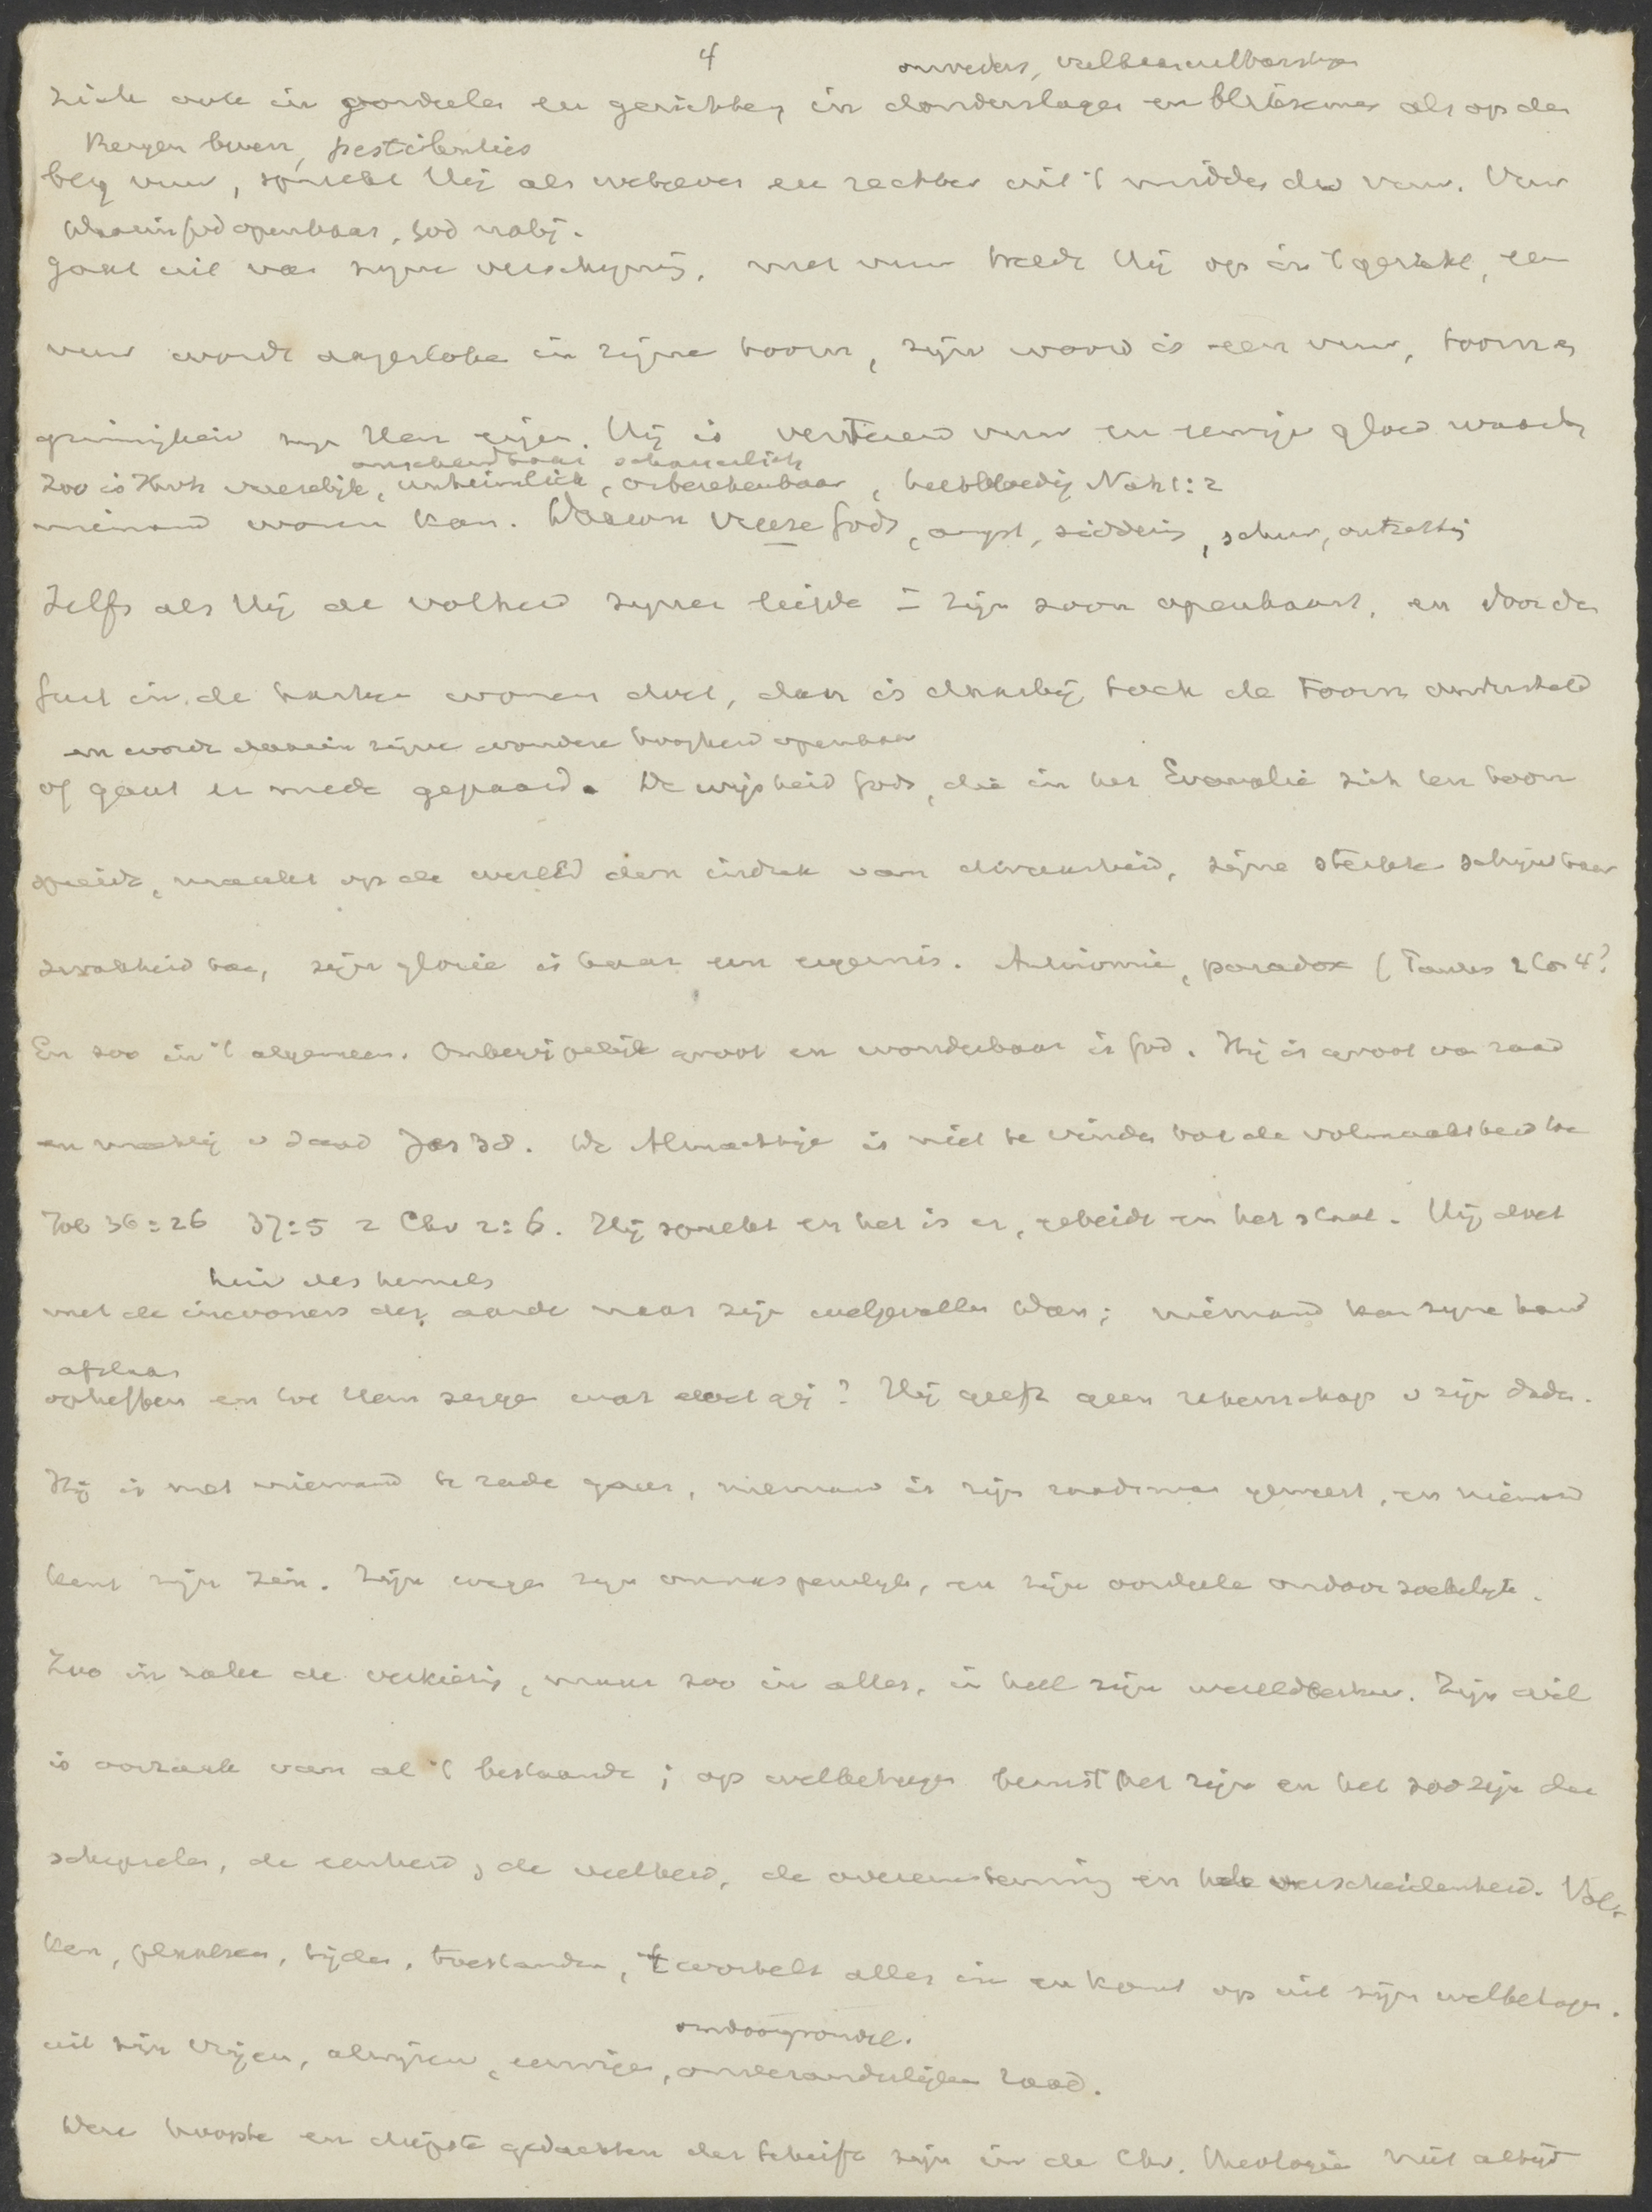 4
onweders, vulkaanuitbarstingen
zich ook in oordeelen en gerichten, in donderslagen en bliksemen als op den
Bergen beven, pestilenties
berg vuur, spreekt Hij als wetgever en rechter uit 't midden des vuurs. Vuur
Waarin God openbaar, God nabij.
gaat uit van zijne verschijning, met vuur treedt Hij op in 't gericht, een
vuur wordt aangestoken in zijnen toorn, zijn woord is een vuur, toorn en
grimmigheid zijn Hem eigen. Hij is verterend vuur en eeuwige gloed waarbij
onscheidbaar schauerlich
Zoo is Jhvh vreeselijk, unheimlich, onberekenbaar, heetbloedig Nah 1:2
niemand wonen kan. Daarom vreeze Gods, angst, siddering, schuw, ontzetting
Zelfs als Hij de volheid zijner liefde in zijn zoon openbaart, en door den
Geest in de harten wonen doet, dan is daarbij toch de toorn ondersteld
en wordt daarin zijne wondere hoogheid openbaar
of gaat er mede gepaard. De wijsheid Gods, die in het Evangelie zich ten toon
spreidt, maakt op de wereld den indruk van dwaasheid, zijne sterkte schijnt haar
zwakheid toe, zijn glorie is haar een ergernis. Antinomie, paradox (Paulus 2 Cor 4?
En zoo in 't algemeen. Onbegrijpelijk groot en wonderbaar is God. Hij is groot van raad
en machtig v daad Jer 32. De Almachtige is niet te vinden tot de volmaaktheid toe
Job 36:26 37:5 2 Chr 2:6. Hij spreekt en het is er, gebiedt en het staat. Hij doet
heir des hemels
met de inwoners der aarde naar zijn welgevallen Dan; niemand kan zijne hand
afslaan
opheffen en tot Hem zeggen wat doet gij? Hij geeft geen rekenschap v zijn daden.
Hij is met niemand te rade gegaan, niemand is zijn raadsman geweest, en niemand
kent zijn zin. Zijn wegen zijn onnaspeurlijk, en zijn oordeelen ondoorzoekelijk.
Zoo in zake de verkiezing, maar zoo in alles, in heel zijn wereldbestuur. Zijn wil
is oorzaak van al 't bestaande; op welbehagen berust het zijn en het zoozijn der
schepselen, de eenheid, de veelheid, de overeenstemming en de verscheidenheid. Vol-
ken, plaatsen, tijden, toestanden, 't wortelt alles in en komt op uit zijn welbehagen.
ondoorgrondel.
uit zijn vrijen, alwijzen, eeuwigen, onveranderlijken raad.
Deze hoogste en diepste gedachten der Schrift zijn in de Chr. theologie niet altijd